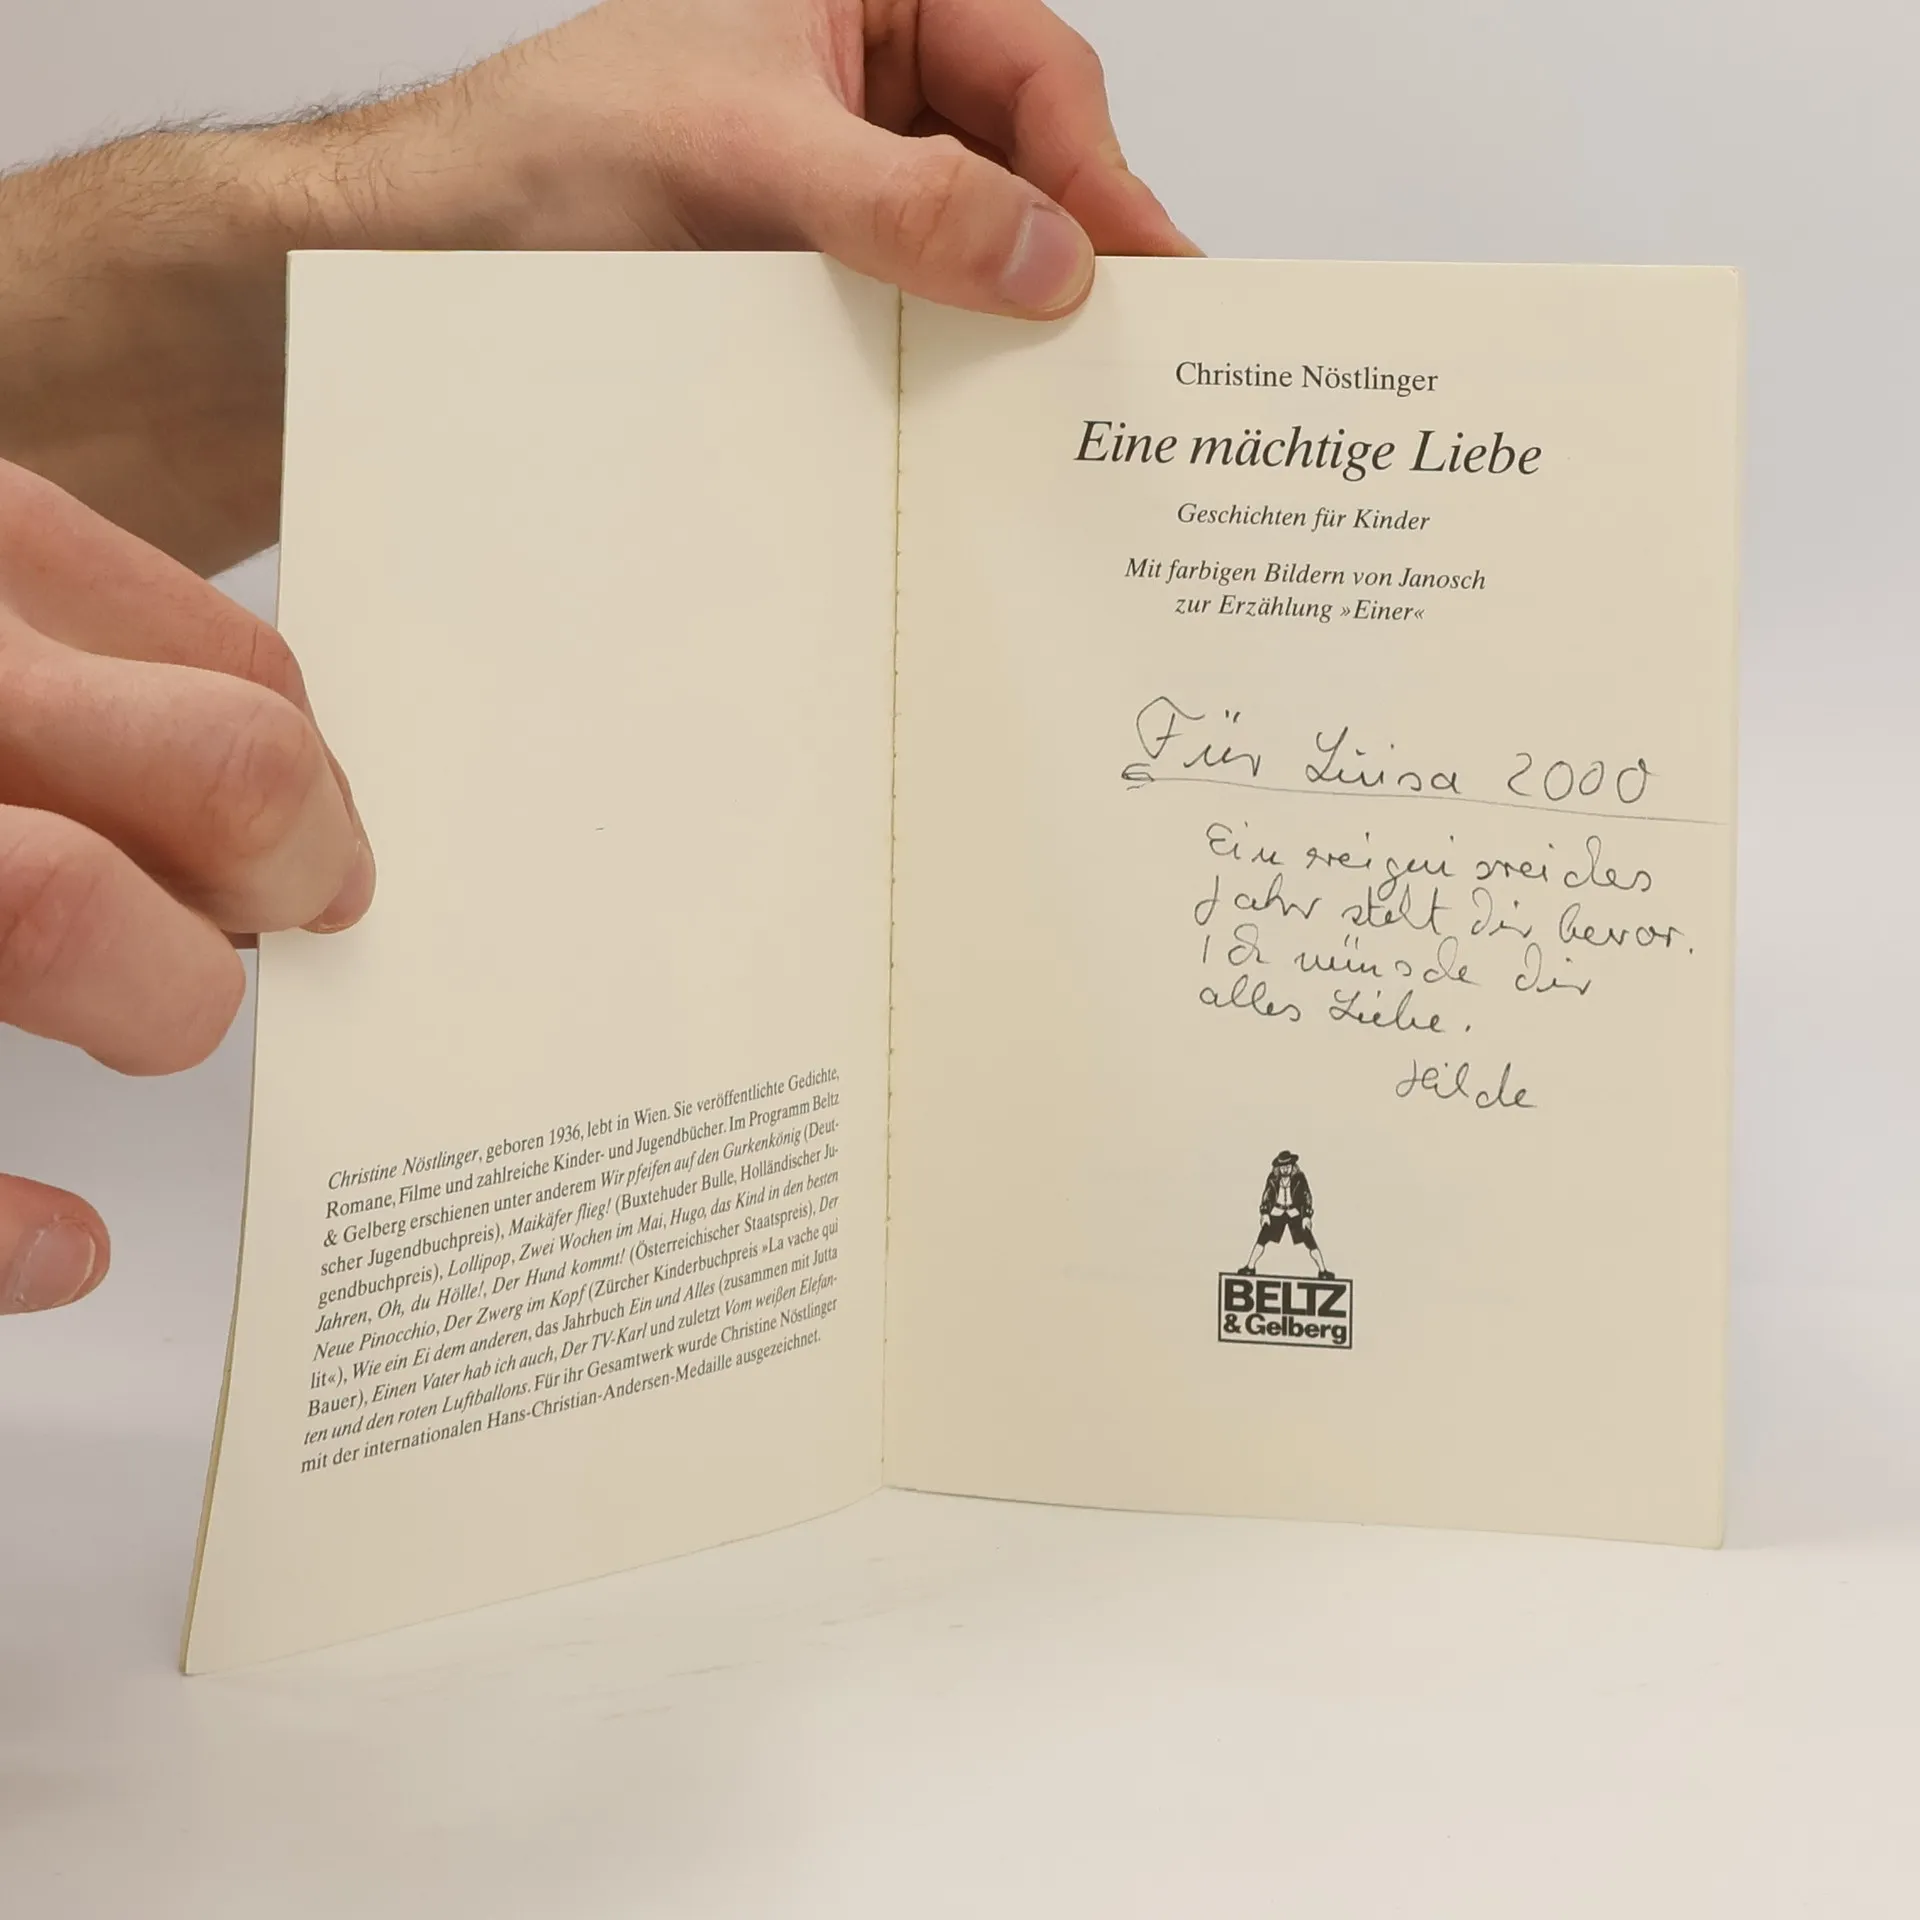 Christine Nöstlinger, geboren 1936, lebt in Wien. Sie veröffentlichte Gedichte,
Romane, Filme und zahlreiche Kinder- und Jugendbücher. Im Programm Beltz
& Gelberg erschienen unter anderem Wir pfeifen auf den Gurkenkönig (Deut-
scher Jugendbuchpreis), Maikäfer flieg! (Buxtehuder Bulle, Holländischer Ju-
gendbuchpreis), Lollipop, Zwei Wochen im Mai, Hugo, das Kind in den besten
Jahren, Oh, du Hölle!, Der Hund kommt! (Österreichischer Staatspreis), Der
Neue Pinocchio, Der Zwerg im Kopf (Zürcher Kinderbuchpreis »La vache qui
lit«), Wie ein Ei dem anderen, das Jahrbuch Ein und Alles (zusammen mit Jutta
Bauer), Einen Vater hab ich auch, Der TV-Karl und zuletzt Vom weißen Elefan-
ten und den roten Luftballons. Für ihr Gesamtwerk wurde Christine Nöstlinger
mit der internationalen Hans-Christian-Andersen-Medaille ausgezeichnet.
Christine Nöstlinger
Eine mächtige Liebe
Geschichten für Kinder
Mit farbigen Bildern von Janosch
zur Erzählung »Einer«
Für Luisa 2000
Ein
Jahr steht Dir bevor.
Ich wünsche Dir
alles Liebe.
Hilde
BELTZ
& Gelberg